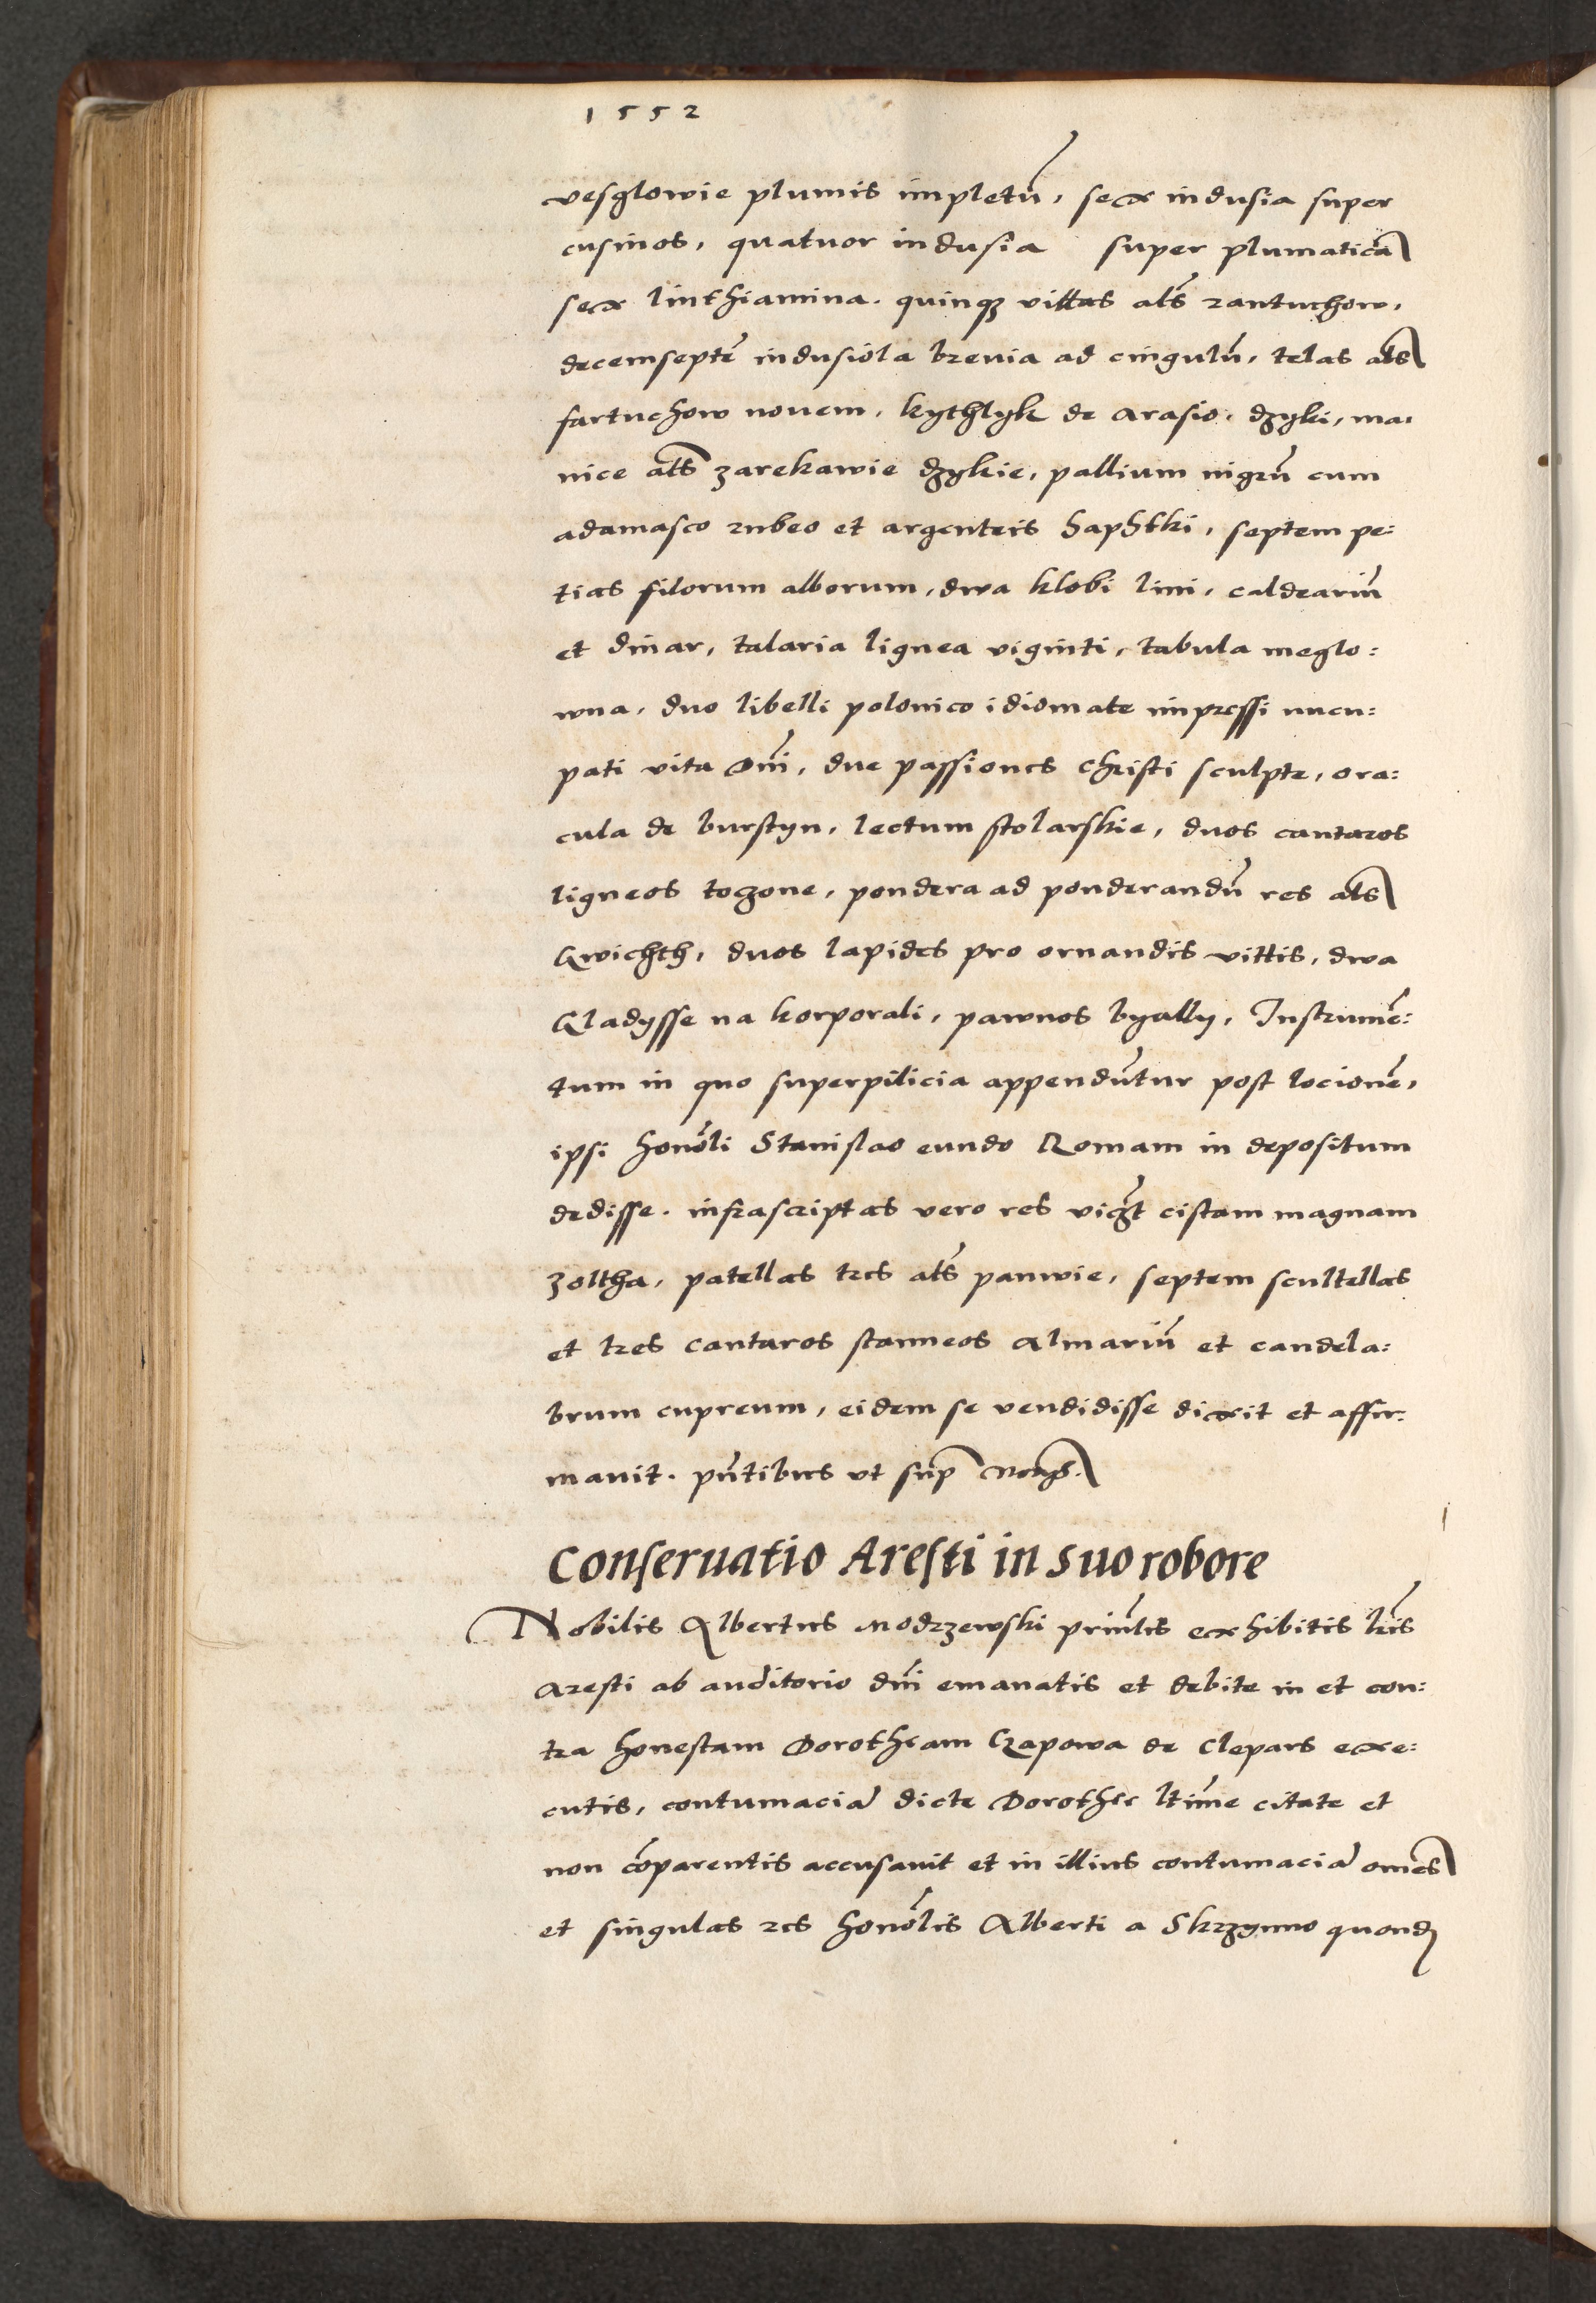 1552
vesglowie plumis impletu̅, sex indusia super
cusinos, quatuor indusia super plumatica̅
sex linthiamina. quinq3 vittas al̅s rantuchow,
decemsepte̅ indusiola brevia ad cingulu̅, telas al̅s
fartuchow novem, kythlyk de arasio, dzyki, ma,
nice al̅s zarekawie dzykie, pallium nigru̅ cum
adamasco rubeo et argenteis haphtki, septem pe:
tias filorum alborum, dwa klobi lini, caldeariu̅
et dinar, talaria lignea viginti, tabula meglo:
wna, duo libelli polonico idiomate impressi nucu:
pati vita dn̅i, due passiones christi sculpte, ora:
cula de burstyn, lectum stolarskie, duos cantaros
ligneos toczone, pondera ad ponderandu̅ res al̅s
Gwichth, duos lapides pro ornandis vittis, dwa
Gladysse na korporali, pawnos byally, Instrume̅:
tum in quo superpilicia appendu̅tur post locione̅,
ipsi hono̅li Stanislao eundo Romam in depositum
dedisse. infrascriptas vero res vicz̅t cistam magnam
zoltha, patellas tres al̅s panwie, septem scultellas
et tres cantaros stanneos almariu̅ et candela:
brum cupreum, eidem se vendidisse dixit et affir:
mavit. pn̅tibus vt sup̅
Conservatio Aresti in suo robore
Nobilis Albertus Modrzewski prin̅lis exhibitis lr̅is
aresti ab auditorio dn̅i emanatis et debite in et con:
tra honestam Dorotheam Czapowa de Clepars exe:
cutis, contumacia̅ dicte Dorothee ltim̅e citate et
non co̅parentis accusavit et in illius contumacia̅ om̅es
et singulas res hono̅lis Alberti a Skrzynno quond